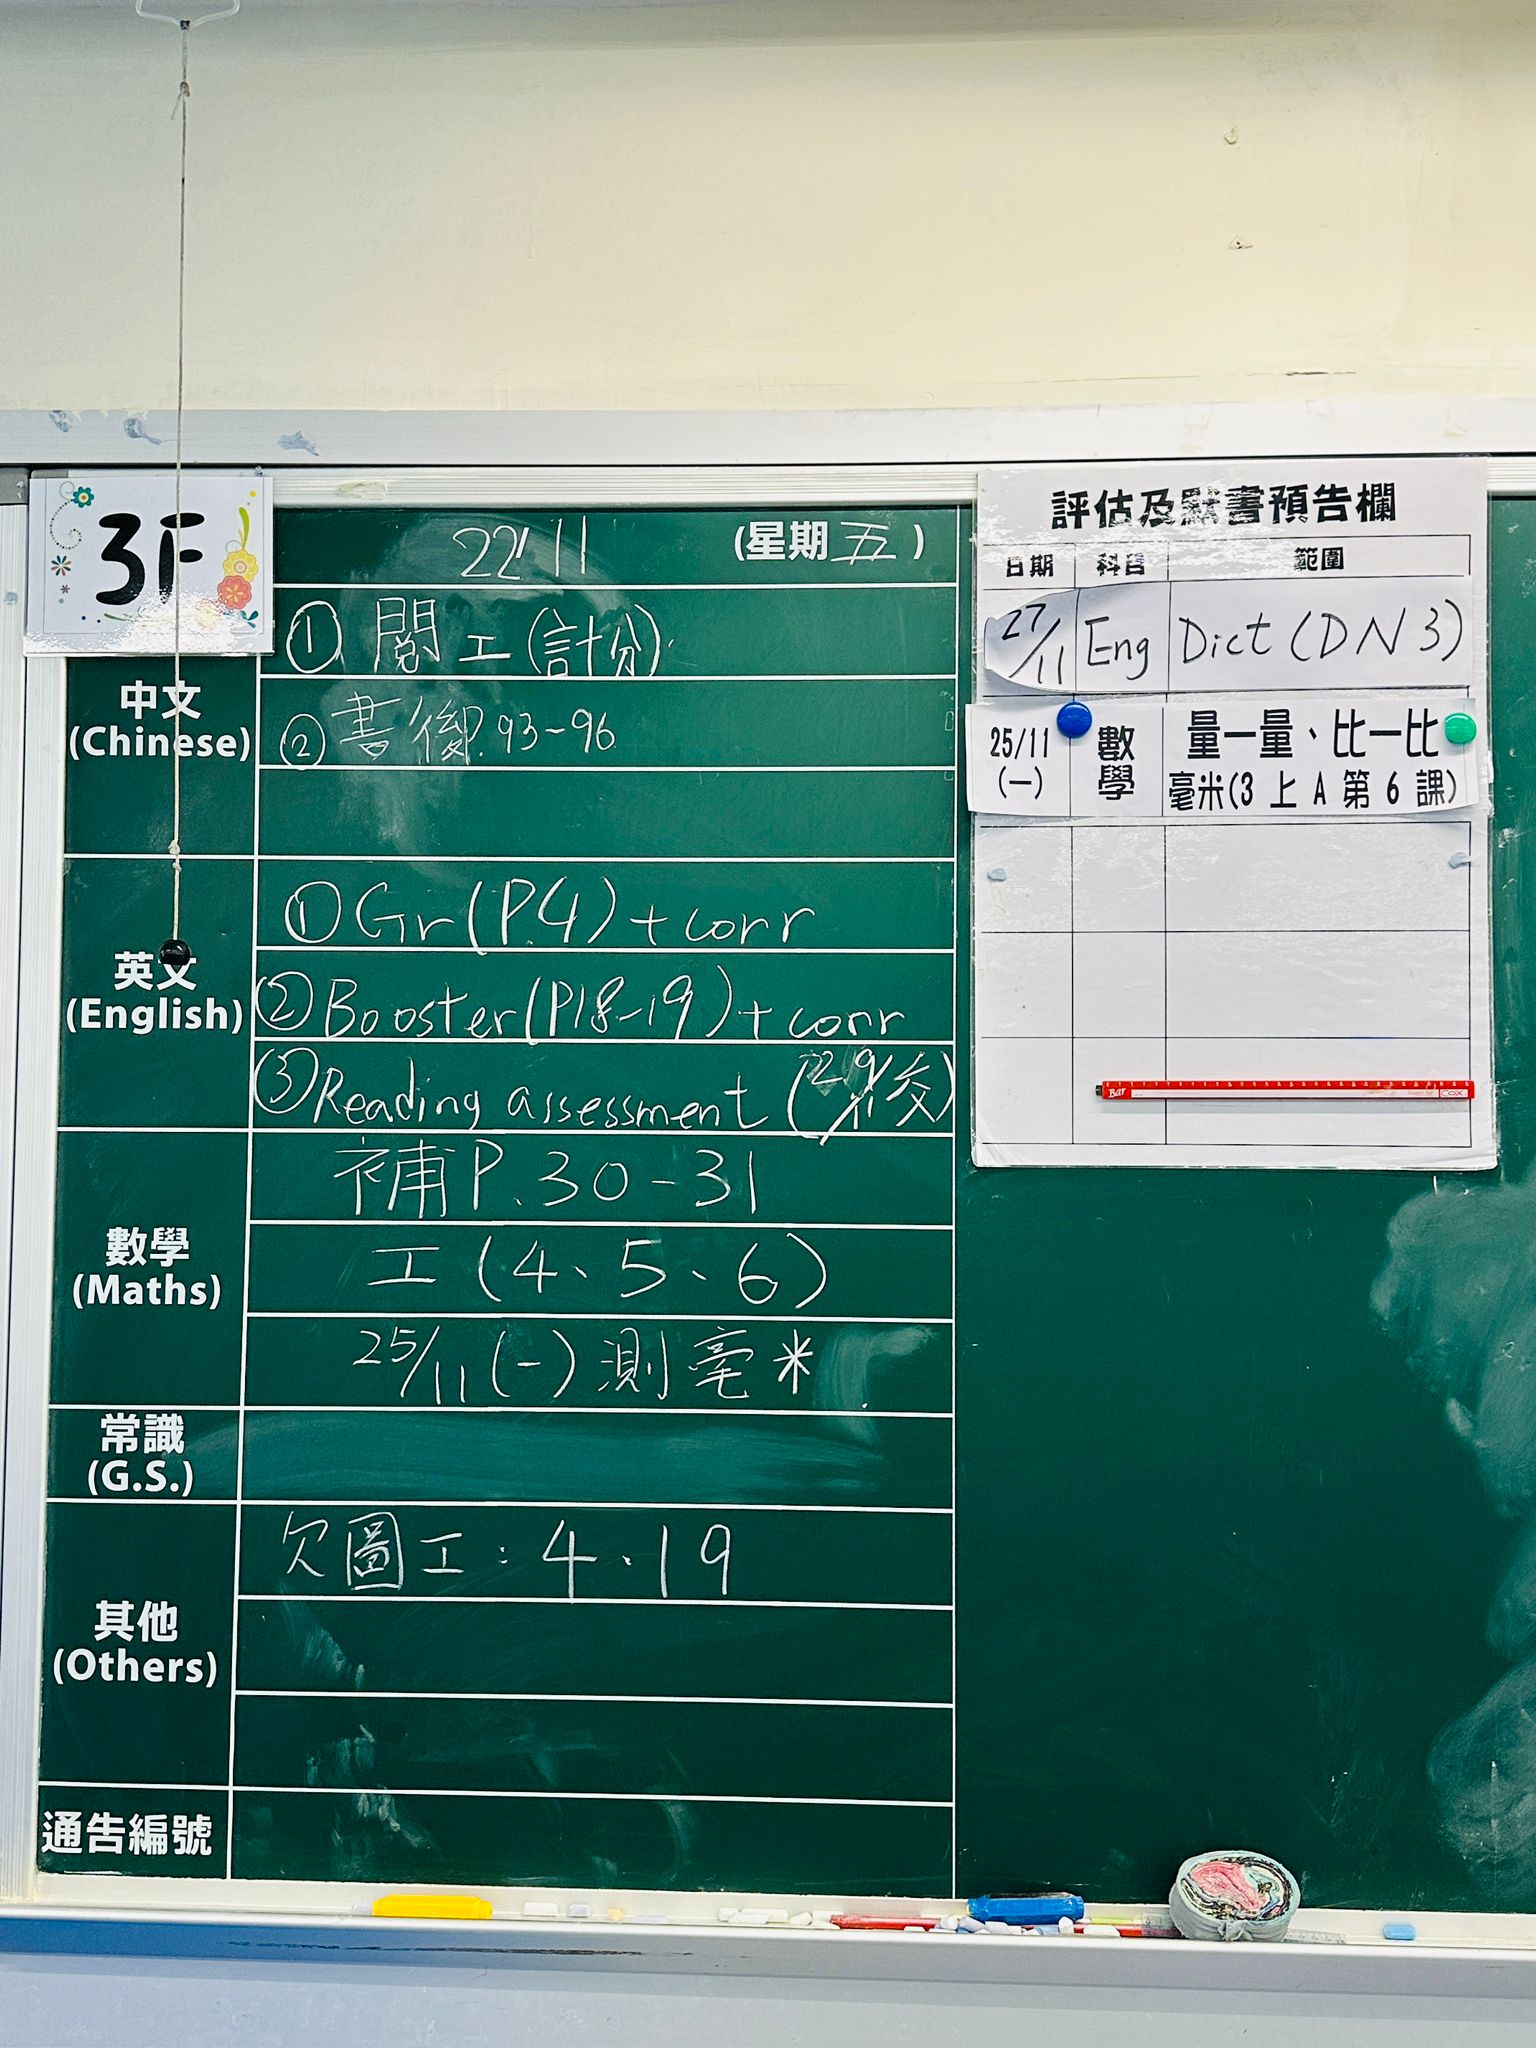 3F
22/11 (星期五)
中文
(Chinese)
① 閱工(計分)
② 書後P.93-96
英文
(English)
① Gr(P.4)+corr
② Booster(P18-19)+corr
③ Reading assessment (29/11交)
數學
(Maths)
補P.30-31
工(4、5、6)
25/11(一)測毫米
常識
(G.S.)
其他
(Others)
欠圖工:4、19
通告編號
評估及默書預告欄
日期 科目 範圍
27/11 Eng Dict (DN3)
25/11 (一) 數學 量一量、比一比
毫米(3 上 A 第 6 課)
Bar
COX